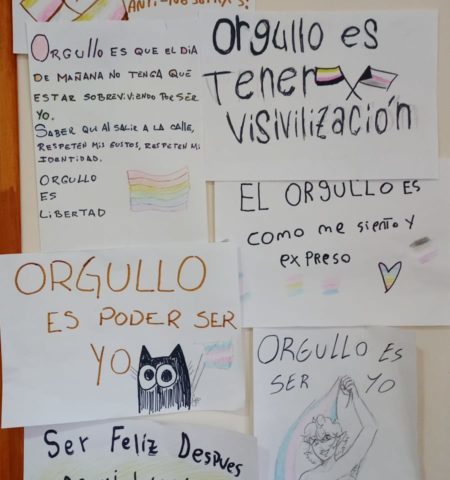 ANTI-NOSOTRXS!
ORGULLO ES QUE EL DIA
DE MAÑANA NO TENGA QUE
ESTAR SOBREVIVIENDO POR SER
YO.
SABER QUE AL SALIR A LA CALLE,
RESPETEN MIS GUSTOS, RESPETEN MI
IDENTIDAD.
ORGULLO
ES
LIBERTAD
Orgullo es
Tener
VISIVILIZACIÓN
EL ORGULLO ES
como me siento y
expreso
ORGULLO
ES PODER SER
YO
ORGULLO ES
SER YO
Ser Feliz Despues